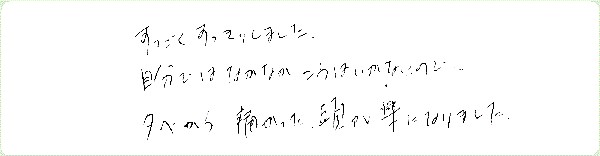 すっごくすっきりしました。
自分ではなかなかこうはいかないので、
夕べから痛かった頭が楽になりました。